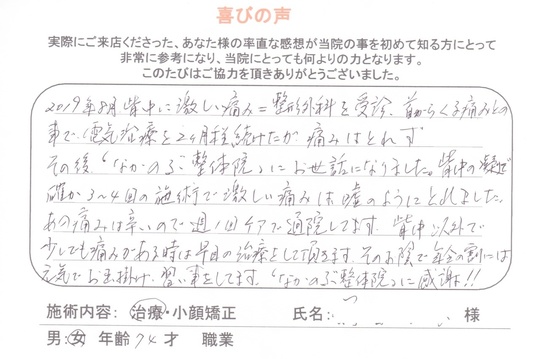 喜びの声
実際にご来店くださった、あなた様の率直な感想が当院の事を初めて知る方にとって
非常に参考になり、当院にとっても何よりの力となります。
このたびはご協力を頂きありがとうございました。
2019年8月背中に激しい痛み＝整形外科を受診、首からくる痛みとの
事で、電気治療を2ヶ月程続けたが痛みはとれず
その後“なかのぶ整体院”にお世話になりました。背中の凝り
確か3〜4回の施術で激しい痛みは嘘のようにとれました。
あの痛みは辛いので週1回ケアで通院してます。背中以外で
少しでも痛みがある時は早目の治療をして頂きます。そのお陰で年令の割には
元気でお出掛け、習い事をしてます。“なかのぶ整体院”に感謝!!
施術内容：治療・小顔矯正 氏名： 様
男：女 年齢 74 才 職業